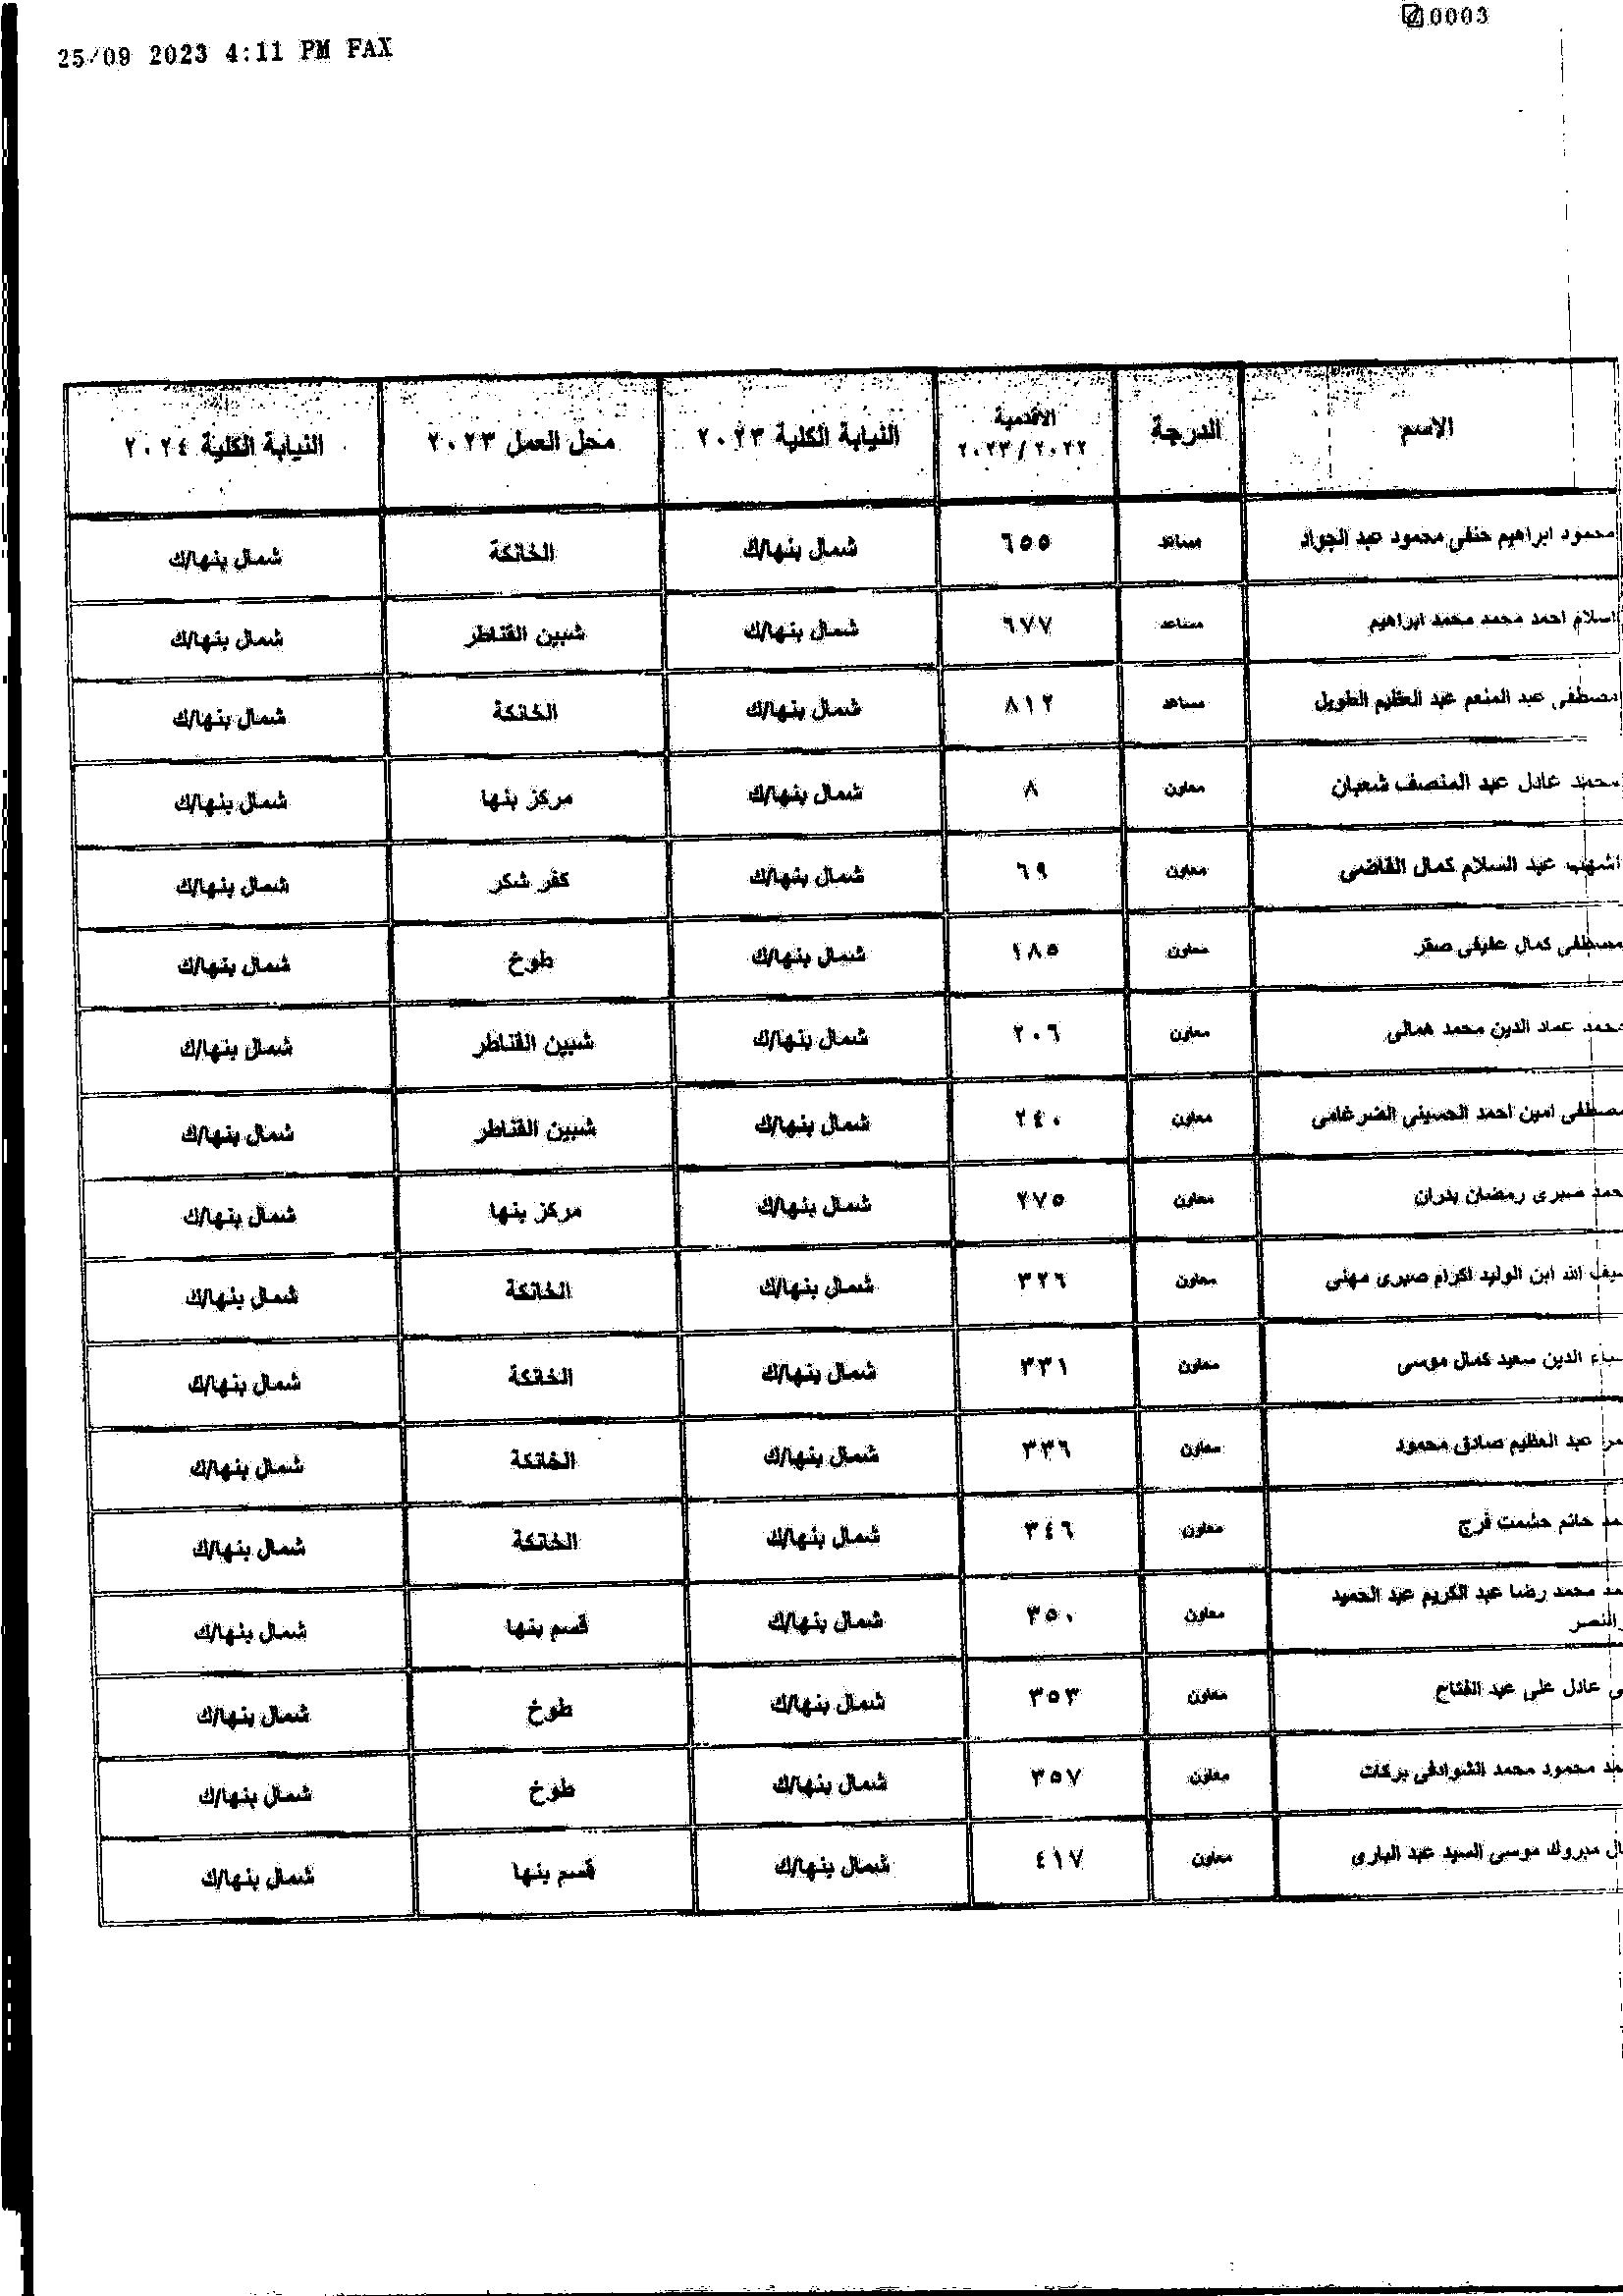 25/09 2023 4:11 PM FAX
0003
الاسم الدرجة الأقدمية ٢٠٢٣/٢٠٢٢ النيابة الكلية ٢٠٢٣ محل العمل ٢٠٢٣ النيابة الكلية ٢٠٢٤
محمود ابراهيم حنفى محمود عبد الجواد مساعد ٦٥٥ شمال بنها/ك الخانكة شمال بنها/ك
اسلام احمد محمد محمد ابراهيم مساعد ٦٧٧ شمال بنها/ك شبين القناطر شمال بنها/ك
مصطفى عبد المنعم عبد العظيم الطويل مساعد ٨١٢ شمال بنها/ك الخانكة شمال بنها/ك
محمد عادل عبد المنصف شعبان معاون ٨ شمال بنها/ك مركز بنها شمال بنها/ك
اشهب عبد السلام كمال القاضى معاون ٦٩ شمال بنها/ك كفر شكر شمال بنها/ك
مصطفى كمال عفيفى صقر معاون ١٨٥ شمال بنها/ك طوخ شمال بنها/ك
حمد عماد الدين محمد همالى معاون ٢٠٦ شمال بنها/ك شبين القناطر شمال بنها/ك
صطفى امين احمد الحسينى الضرغامى معاون ٢٤٠ شمال بنها/ك شبين القناطر شمال بنها/ك
حمد صبرى رمضان بدران معاون ٢٧٥ شمال بنها/ك مركز بنها شمال بنها/ك
سيف الله ابن الوليد اكرام صبرى مهنى معاون ٣٢٦ شمال بنها/ك الخانكة شمال بنها/ك
الدين سعيد كمال موسى معاون ٣٣١ شمال بنها/ك الخانكة شمال بنها/ك
مر عبد العظيم صادق محمود معاون ٣٣٦ شمال بنها/ك الخانكة شمال بنها/ك
مد حاتم حشمت فرج معاون ٣٤٦ شمال بنها/ك الخانكة شمال بنها/ك
مد محمد رضا عبد الكريم عبد الحميد معاون ٣٥٠ شمال بنها/ك قسم بنها شمال بنها/ك
النصر
ى عادل على عبد الفتاح معاون ٣٥٣ شمال بنها/ك طوخ شمال بنها/ك
مد محمود محمد الشوادفى بركات معاون ٣٥٧ شمال بنها/ك طوخ شمال بنها/ك
ال مبروك موسى السيد عبد البارى معاون ٤١٧ شمال بنها/ك قسم بنها شمال بنها/ك